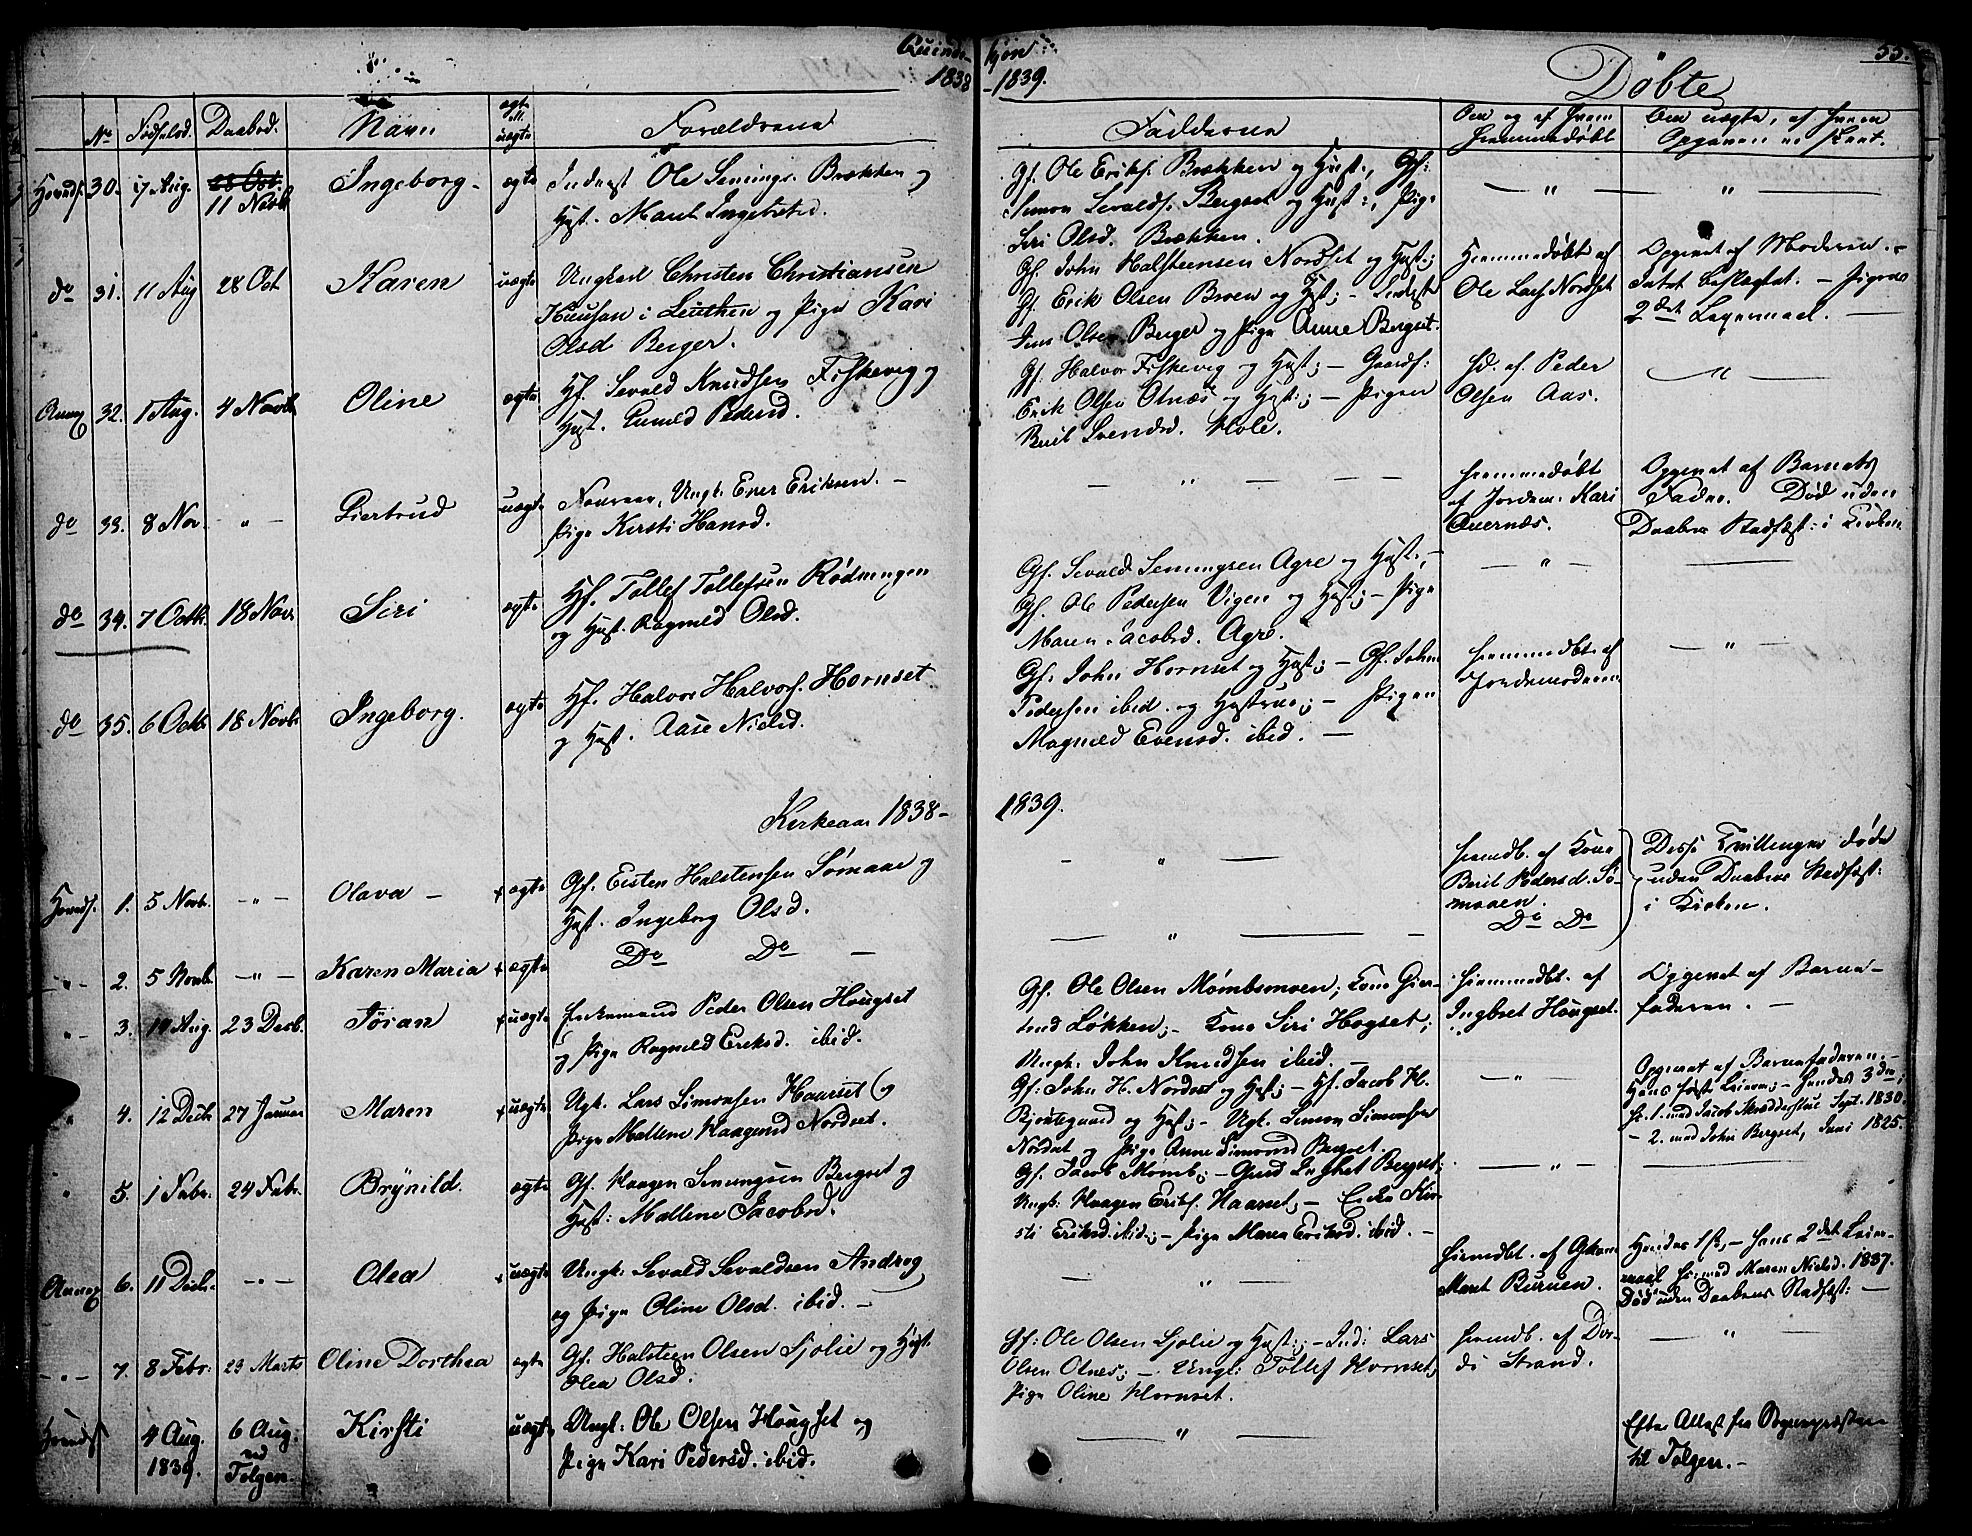 Quinde- kjøn
1838 -1839.
55.
Döbte
No Födselsd. Daabsd. Navn ægte ell. uægte Forældrene
Fadderne Om og af hvem hjemmedøbt Om uægte, af hvem Opgiven
Hoveds. 30. 17 Aug. 28 Oct. 11 Novb. Ingeborg - ægte Inderst Ole Simings. Brækken og
Hust. Marit Ingebrtsd.
Gf. Ole Eriks. Brækken og Hust., Gf:
Simon Sevalds. Bergset og Hust:, Pige
Siri Olsd. Brækken.
— " — — " —
do 31. 11 Aug 28 Oct Karen uægte Ungkarl Christen Christiansen
Knusen i Leuthen og Pige Kari
Olsd Berger.
Gf. John Halsteensen Nordset og Hust;
Gf. Erik Olsen Broen og Hst; -
Jens Olsen Berger og Pige Anne Bergset.
Hiemmedøbt af
Ole Nordset
Opgivet af Moderen. -
Intet beslægtet. - Pigens
2det Leyermaal. -
Annex 32. 1 Aug. 4 Novb Oline ægte Hf. Sevald Knudsen Fiskevig og
Hust. Gunild Pedersd.
Gf. Halvor Fiskevig og Hust; - Gaards:
Erik Olsen Otnæs og Hst:; - Pigen
Beril Svendsd. Hole.
Hd. af Peder
Olsen Aas.
— " —
do 33. 8 Nov. " - Giertrud uægte Ungk. Ener Eriksen. -
Pige Kirsti Hansd.
— " — — —
Hiemmedøbt
af Jordem: Kari
Qvernæs.
Opgivet af Barnets
Fader. Död uden
Daabens Stadfæst: i Kirken
do 34. 7 Octb. 18 Novr. Siri ægte Hf. Tollef Tollefsen Rödningen
og Hust. Ragnild Olsd.
Gf. Sevald Semingsen Agre og Hust. -
Gf. Ole Pedersen Vigen og Hst; - Pige
Maren Jacobsd. Agre.
— " — —
do 35. 6 Octb. 18 Novb. Ingeborg. ægte Hf. Halvor Halvors. Hornset
og Hust. Aase Nielsd.
Gf. John Hornset og Hust; - Gf. John
Pedersen ibid. og Hustrue; - Pigen
Magnild Evensd. ibid. —
hiemmedbt. af
Jordemoderen
— " —
Kirkeaar 1838- 1839.
Hoveds. 1. 5 Novb. - " - Olava - + ægte Gf. Eisten Halstensen Sømaae og
Hust. Ingeborg Olsd.
- " —
hiemdb. af Kone
Beril Pedersd. Sø-
maaen.
Disse Tvillinger døde
uden Daabens Stadfæst:
i Kirken.
- " - 2. 5 Novb. - " - Karen Maria + ægte Do Do —
— " — —
Do Do
" - 3. 19 Aug. 23 Decb. Jöran + uægte Enkemand Peder Olsen Hougset
og Pige Ragnild Eriksd. ibid.
Gf. Ole Olsen Mømbsmoen; Kone Gier-
trud Løkken; - Kone Siri Hogset;
Ungk. John Knudsen ibid. —
hiemmedbt. af
Ingbret Hougset.
Opgivet af Barne-
faderen. —
" 4. 12 Decb. 27 Januar Maren + uægte Ugk. Lars Simonsen Haarset og
Pige Mallene Haagensd Nordset.
Gf. John H. Nordset og Hust; - Hf. Jacob H.
Bjontegaard og Hust; - Ugk. Simon Simonsen
Nordset og Pige Anne Simonsd Bergset.
— " —
Opgivet af Barnefaderen. -
Hans første Leierm; - hendes 3die;
1. med Jacob Skrædderstue Sept. 1830.
- 2. med John Bergset, Juni 1825.
" 5. 1 Febr. 24 Febr. Brynild. ægte Gf. Haagen Semingsen Bergset og
Hust: Mallene Jacobsd.
Gf. Jacob Momb; - Bergset;
Ungk: Haagen Eriks. Haarset; - Enke Kir-
sti Eriksd. ibid.; - Pige Maren Eriksd. ibid. -
— " — —
Annex 6. 11 Decb. - " - Olea + uægte Ungk. Sevald Sevaldsen Androg
og Pige Oline Olsd. ibid. -
— " —
hiemdbt. af
Marit Buruen.
Hendes 1ste, - hans 2det Leier-
maal med Maren Nielsd. 1837.
Död uden Daabens Stadfæst: —
- " - 7. 8 Febr: 23 Marts Oline Dorthea ægte Gf. Halsteen Olsen Sjolie og Hust.
Olea Olsd.
Gf: Ole Olsen Sjolie og Hust:; - Ind: Lars
Olsen Otnes; - Ungk: Tollef Hornset;
Pige Oline Hornset.
hiemdb. af Dor-
de Strand.
— " —
Hoveds 4 Aug. 1839. 6 Aug: ved Tolgen. Kirsti uægte Ungk: Ole Olsen Hougset og
Pige Kari Pedersd. ibid.
— " —
Efter Attest fra Sognepræsten
til Tolgen. -